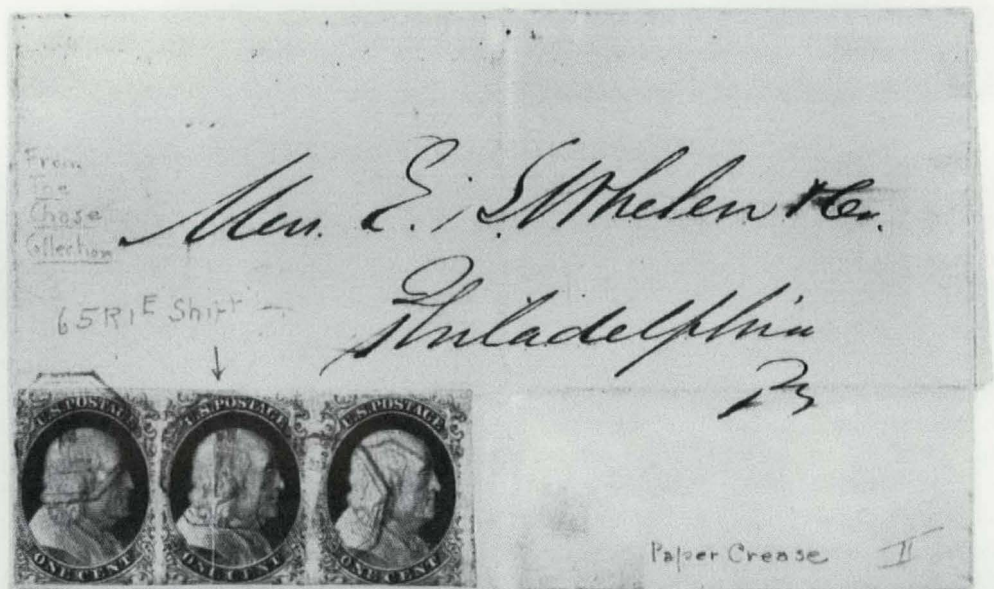 From
The
Chase
Collection
Mess. E. S. Whelen & Co.
Philadelphia
Pa
65R1E Shift
U.S. POSTAGE U.S. POSTAGE U.S. POSTAGE
ONE CENT ONE CENT ONE CENT
Paper Crease II